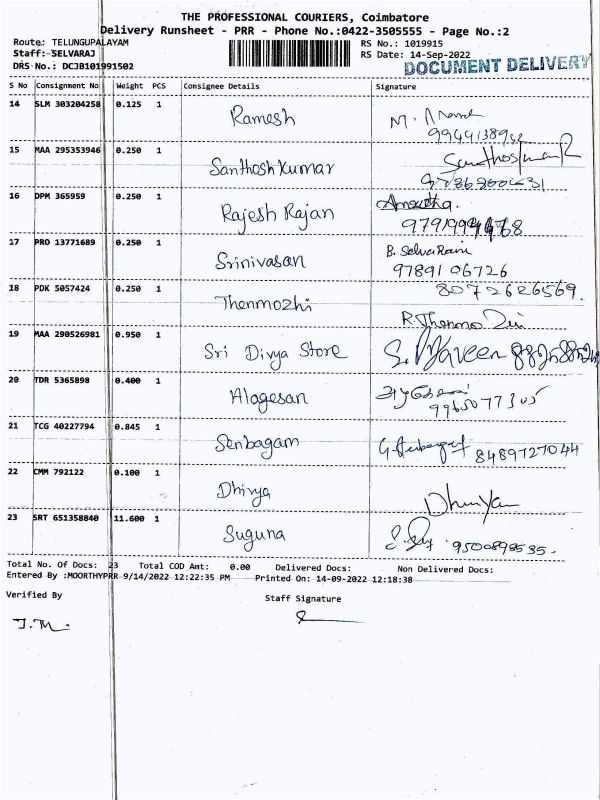 THE PROFESSIONAL COURIERS, Coimbatore
Delivery Runsheet - PRR - Phone No.:0422-3505555 - Page No.:2
Route: TELUNGUPALAYAM RS No.: 1019915
Staff: SELVARAJ RS Date: 14-Sep-2022
DRS No.: DCJB101991502 DOCUMENT DELIVERY
S No Consignment No Weight PCS Consignee Details Signature
14 SLM 303204258 0.125 1 Ramesh M.
15 MAA 295353946 0.250 1 Santhosh Kumar
16 DPM 365959 0.250 1 Rajesh Rajan
17 PRO 13771689 0.250 1 Srinivasan B. Selva Rani
9789106726
18 PDK 5057424 0.250 1 Thenmozhi 8072626569.
19 MAA 290526981 0.950 1 Sri Divya Store
20 TDR 5365898 0.400 1 Alagesan
21 TCG 40227794 0.845 1 Senbagam 8489727044
22 CMM 792122 0.100 1 Dhivya
23 SRT 651358840 11.600 1 Suguna
Total No. Of Docs: 23 Total COD Amt: 0.00 Delivered Docs: Non Delivered Docs:
Entered By :MOORTHYPRR 9/14/2022 12:22:35 PM Printed On: 14-09-2022 12:18:38
Verified By Staff Signature